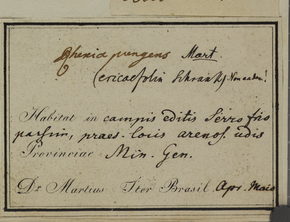 Rhexia pungens Mart
(ericaefolia Schrank) Non eadem!
Habitat in campis editis Serro frio
passim, praes. locis arenos. udis
Provinciae Min. Gen.
Dr Martius Iter Brasil Apr. Maio